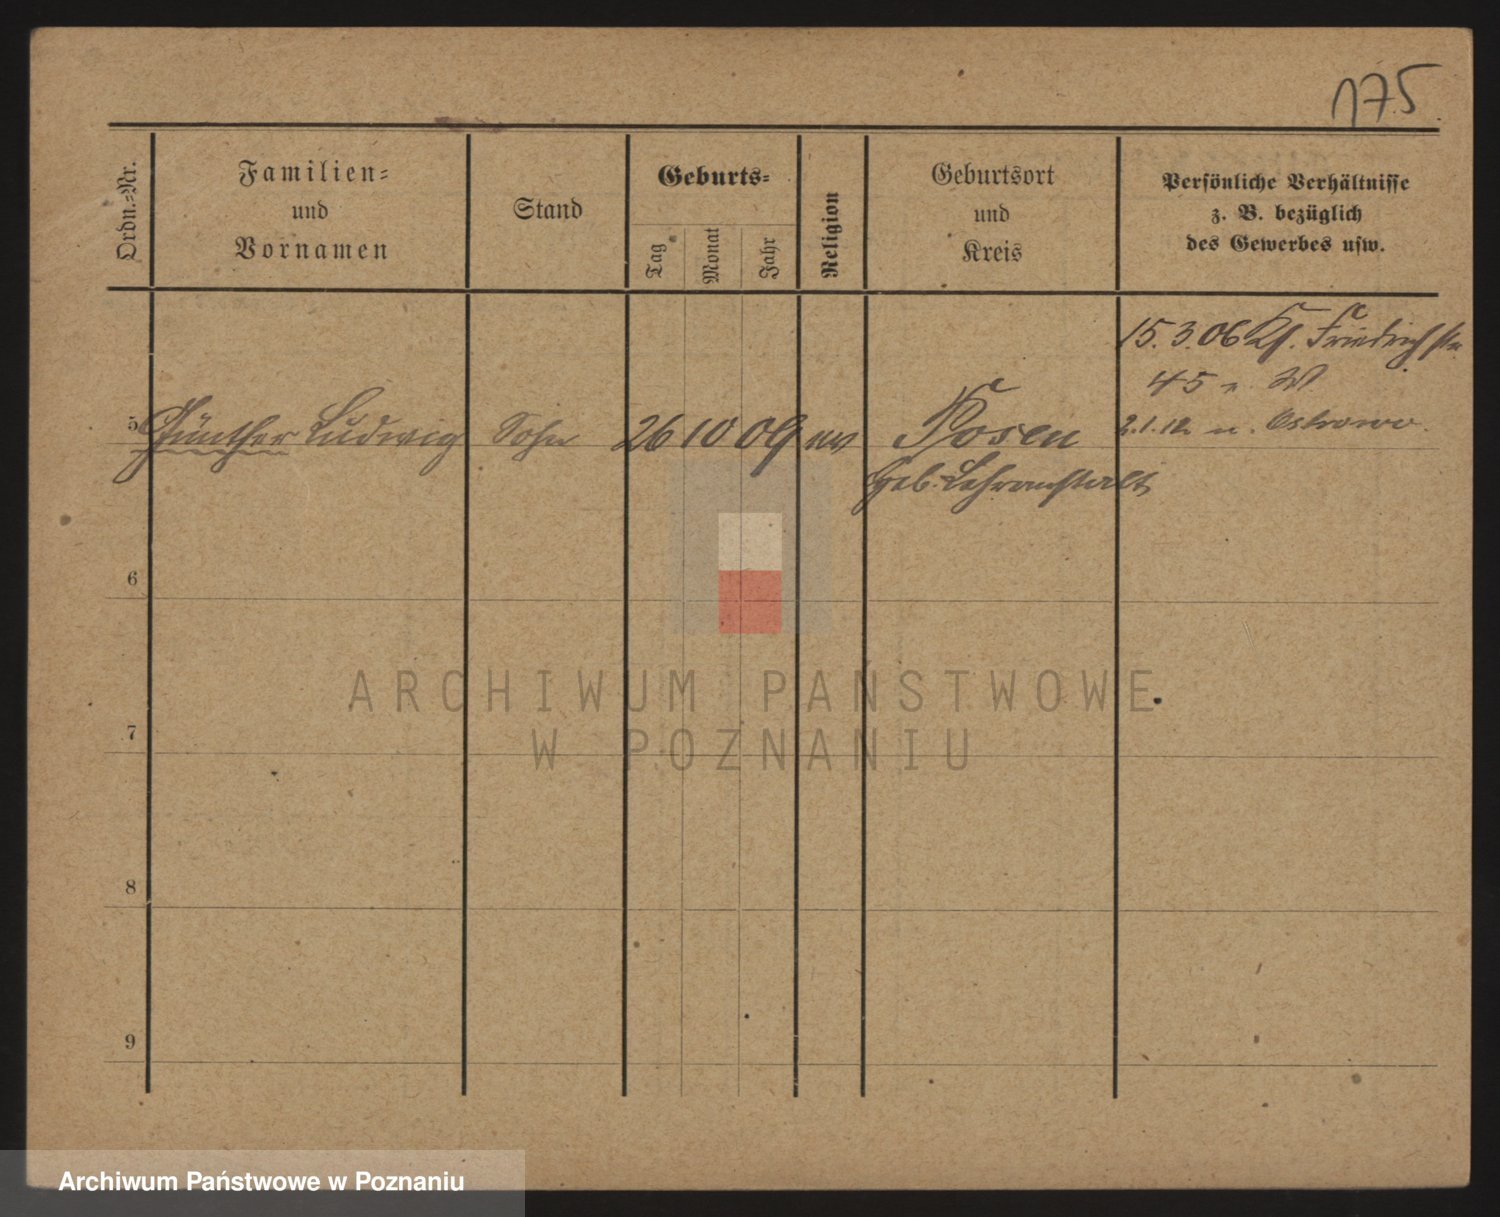 175
Ordn.-Nr.
Familien-
und
Vornamen
Stand
Geburts-
Tag
Monat
Jahr
Religion
Geburtsort
und
Kreis
Persönliche Verhältnisse
z. B. bezüglich
des Gewerbes usw.
15.3.06 Friedrichstr
45 W
5 Günther Ludwig Sohn 26 10 09 ev Posen 2.1.12 n. Ostrowo.
Geb. Lehranstalt
6
ARCHIWUM PAŃSTWOWE
W POZNANIU
7
8
9
Archiwum Państwowe w Poznaniu